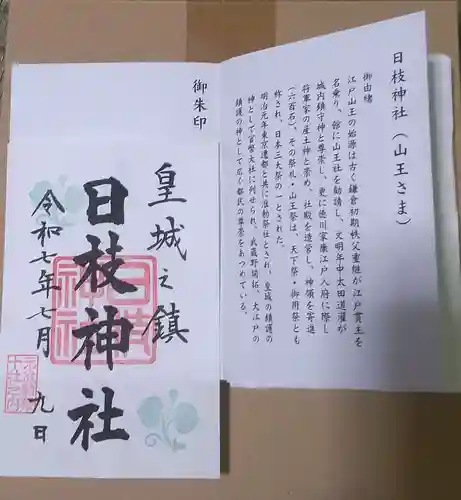 日枝神社（山王さま）
御由緒
江戸山王の始源は古く鎌倉初期秩父重継が江戸貫主を
名乗り、館に山王社を勧請し、文明年中太田道灌が
城内鎮守神と尊崇し、更に徳川家康江戸入府に際し
将軍家の産土神と崇め、社殿を造営し、神領を寄進
（六百石）、その祭礼・山王祭は、天下祭・御用祭とも
称され、日本三大祭の一とされた。
明治元年東京遷都と共に准勅祭社とされ、皇城の鎮護の
神として官幣大社に列せられ、武蔵野開拓、大江戸の
鎮護の神として広く都民の尊崇をあつめている。
御朱印
皇城之鎮
日枝神社
令和七年七月
九日
日枝
神社